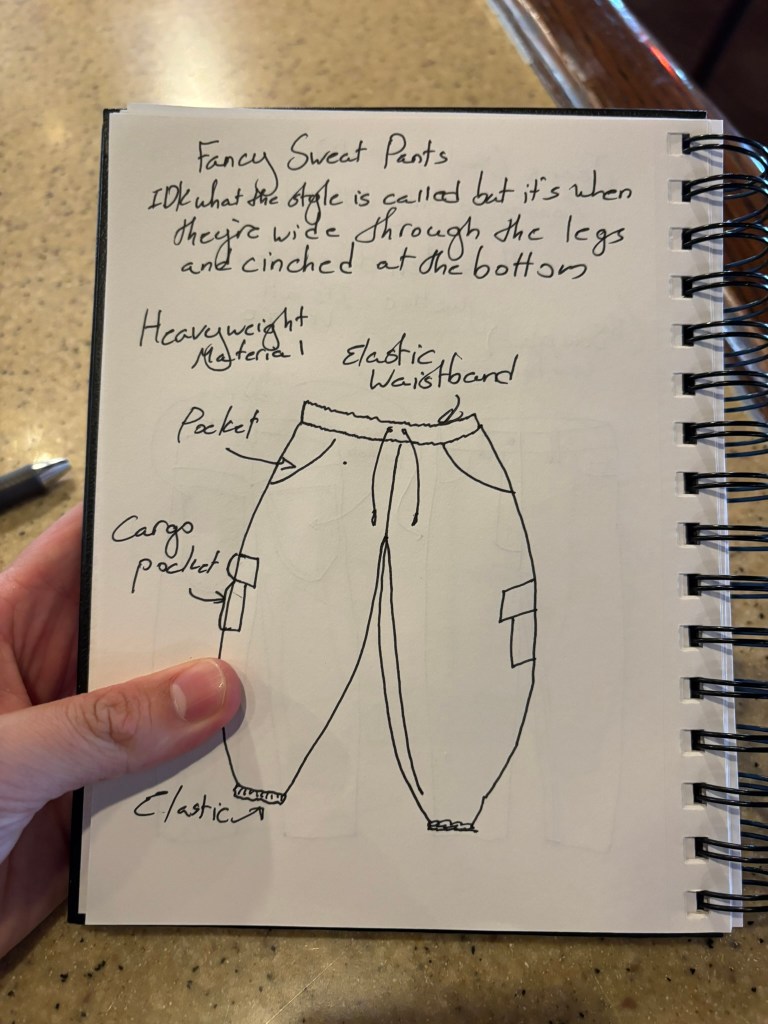 Fancy Sweat Pants
IDK what the style is called but it's when
they're wide through the legs
and cinched at the bottom
Heavyweight
Material
Elastic
Waistband
Pocket
Cargo
pocket
Elastic